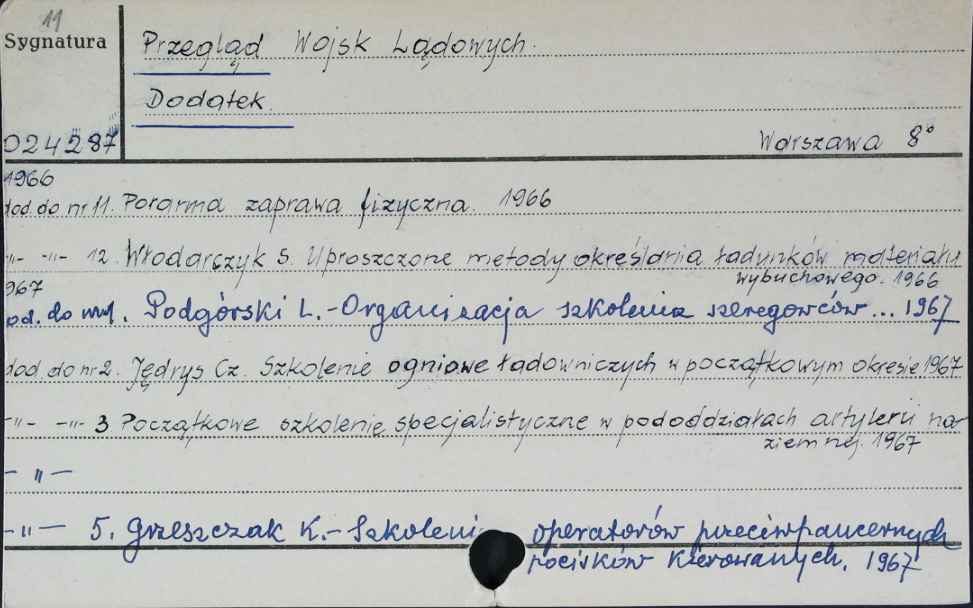 11
Sygnatura
Przegląd Wojsk Lądowych.
Dodatek
024287
Warszawa 8°
1966
dod. do nr 11. Poranna zaprawa fizyczna. 1966
-"- -"- 12. Włodarczyk S. Uproszczone metody określania ładunków materiału
wybuchowego. 1966
967
od. do nr 1. Podgórski L.-Organizacja szkolenia szeregowców... 1967
dod. do nr 2. Jędrys Cz. Szkolenie ogniowe ładowniczych w początkowym okresie 1967
-"- -"- 3 Początkowe szkolenie specjalistyczne w pododdziałach artylerii na-
ziemnej. 1967
- " -
-"- 5. Grzeszczak K.-Szkoleni operatorów przeciwpancernych
pocisków kierowanych. 1967